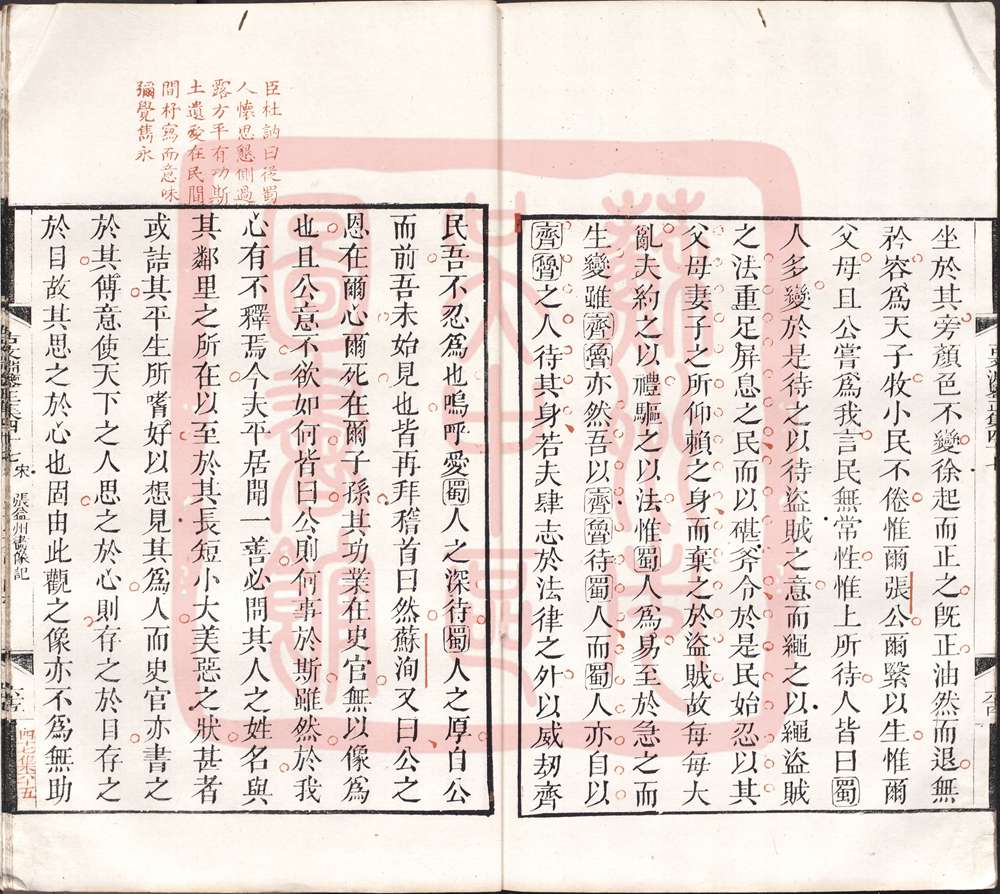 坐於其旁顏色不變徐起而正之旣正油然而退無
矜容爲天子牧小民不倦惟爾張公爾繄以生惟爾
父母且公嘗爲我言民無常性惟上所待人皆曰蜀
人多變於是待之以待盜賊之意而繩之以繩盜賊
之法重足屏息之民而以碪斧令於是民始忍以其
父母妻子之所仰賴之身而棄之於盜賊故每每大
亂夫約之以禮驅之以法惟蜀人爲易至於急之而
生變雖齊魯亦然吾以齊魯待蜀人而蜀人亦自以
齊魯之人待其身若夫肆志於法律之外以威刼齊
臣杜訥曰從蜀
人懷思懇側過
露方平有功斯
土遺愛在民間
間杼寫而意味
彌覺雋永
民吾不忍爲也嗚呼愛蜀人之深待蜀人之厚自公
而前吾未始見也皆再拜稽首曰然蘇洵又曰公之
恩在爾心爾死在爾子孫其功業在史官無以像爲
也且公意不欲如何皆曰公則何事於斯雖然於我
心有不釋焉今夫平居聞一善必問其人之姓名與
其鄰里之所在以至於其長短小大美惡之狀甚者
或詰其平生所嗜好以想見其爲人而史官亦書之
於其傳意使天下之人思之於心則存之於目存之
於目故其思之於心也固由此觀之像亦不爲無助
宋 張益州畫像記